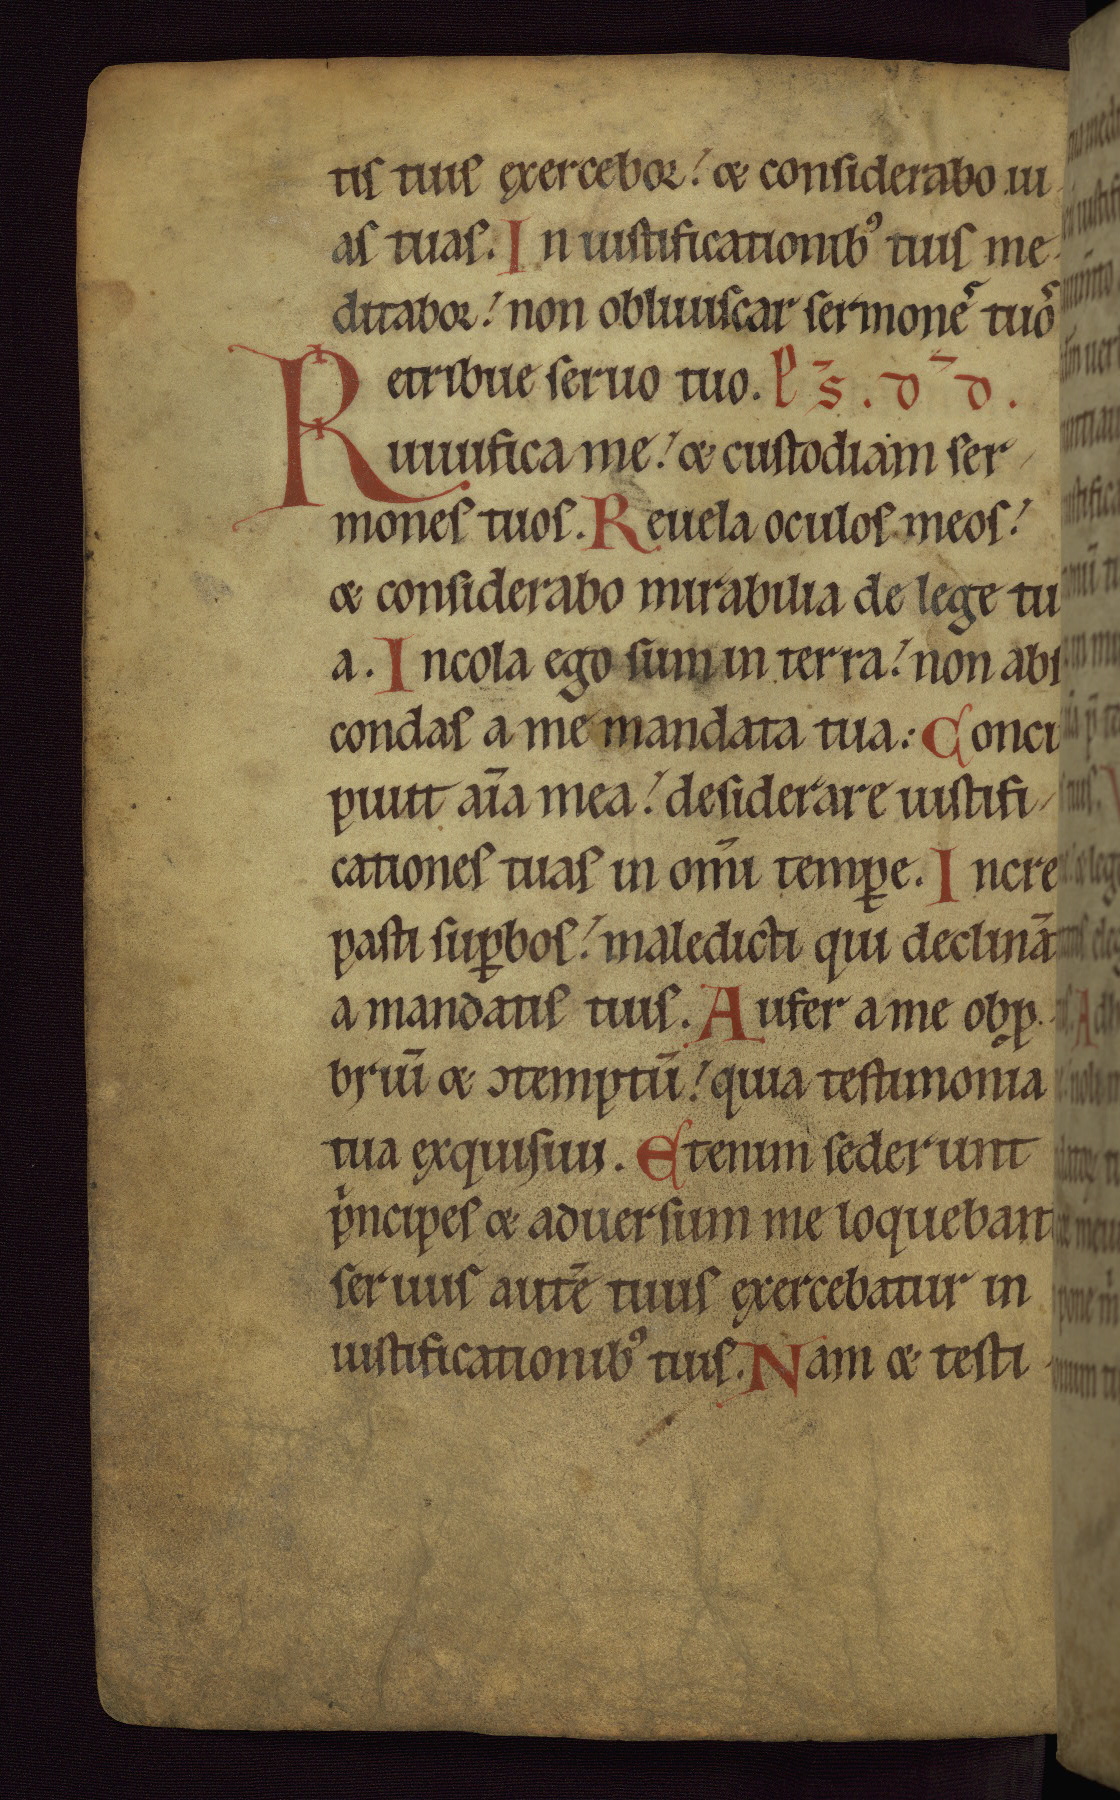 tis tuis exercebor! & considerabo ui
as tuas. In iustificationibꝰ tuis me-
ditabor! non obliuiscar sermonēs tuos
Retribue seruo tuo. Ps̄. d̄ d.
uiuifica me! & custodiam ser-
mones tuos. Reuela oculos meos!
& considerabo mirabilia de lege tu
a. Incola ego sum in terra! non abs
condas a me mandata tua: Concu
piuit aīa mea! desiderare iustifi-
cationes tuas in om̄i temꝑe. Incre
pasti suꝑbos! maledicti qui declinā
a mandatis tuis. Aufer a me obꝓ-
briū & ↄtemptū! quia testimonia
tua exquisiui. Etenim sederunt
pⁱncipes & aduersum me loquebant
seruus autē tuus exercebatur in
iustificationibꝰ tuis. Nam & testi-